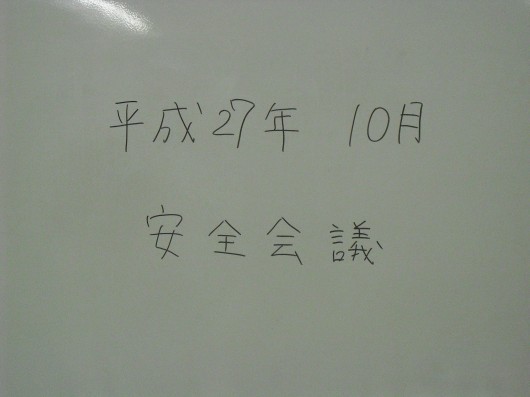 平成27年 10月
安全会議